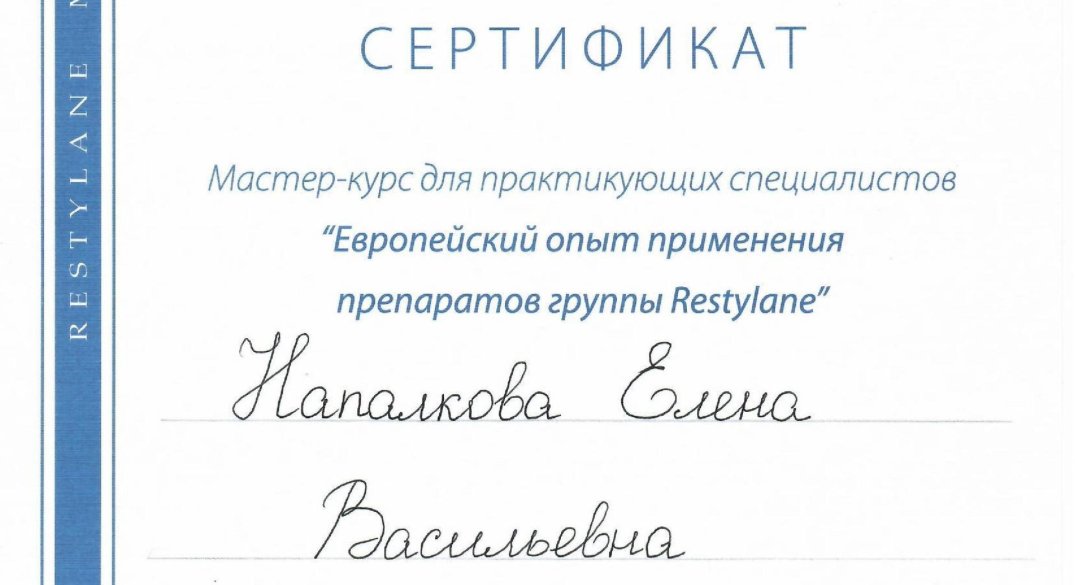 СЕРТИФИКАТ
Мастер-курс для практикующих специалистов
“Европейский опыт применения
препаратов группы Restylane”
Напалкова Елена
Васильевна
RESTYLANE